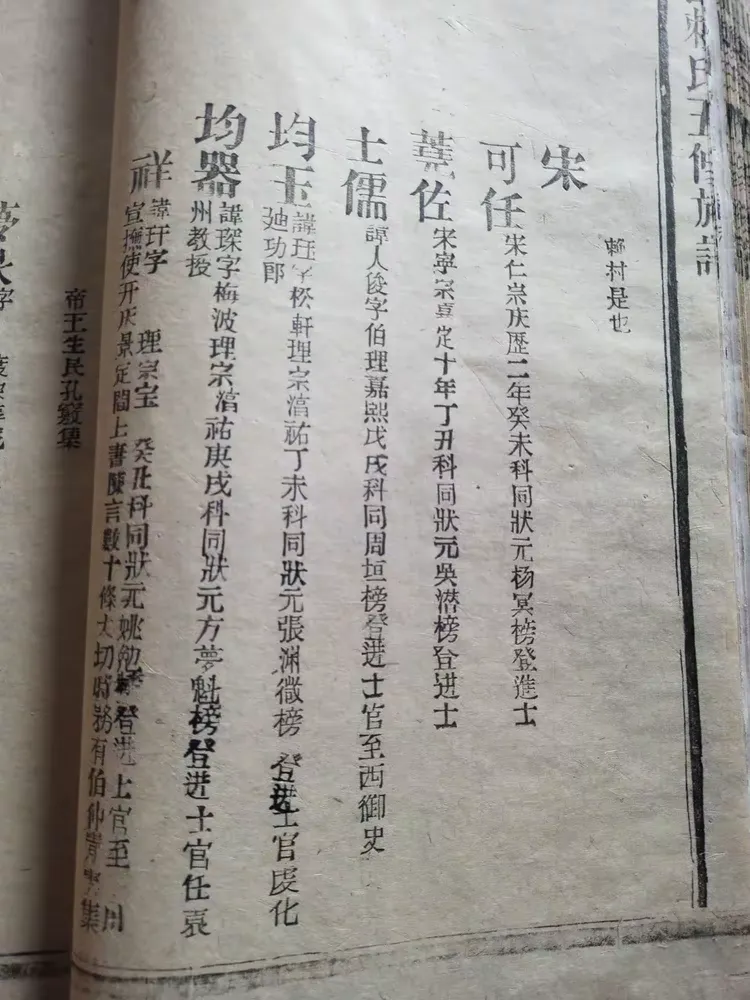 賴氏五修族譜
賴村是也
宋
可任 宋仁宗庆歷二年癸未科同狀元杨寘榜登進士
佐 宋寧宗嘉定十年丁丑科同狀元吳潜榜登进士
士儒 諱人俊字伯理嘉熙戊戌科同周坦榜登进士官至西御史
均玉 諱玨字松軒理宗淳祐丁未科同狀元張渊微榜登进士官廸功郎
均器 諱琛字梅波理宗淳祐庚戌科同狀元方夢魁榜登进士官任袁州教授
祥 諱玕字 理宗宝 癸丑科同狀元姚勉榜登进士官至
宣撫使开庆景定間上書陳言數十條大切時務有伯仲 集
帝王生民孔竅集